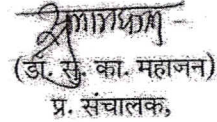 (डॉ. सु. का. महाजन)
प्र. संचालक,